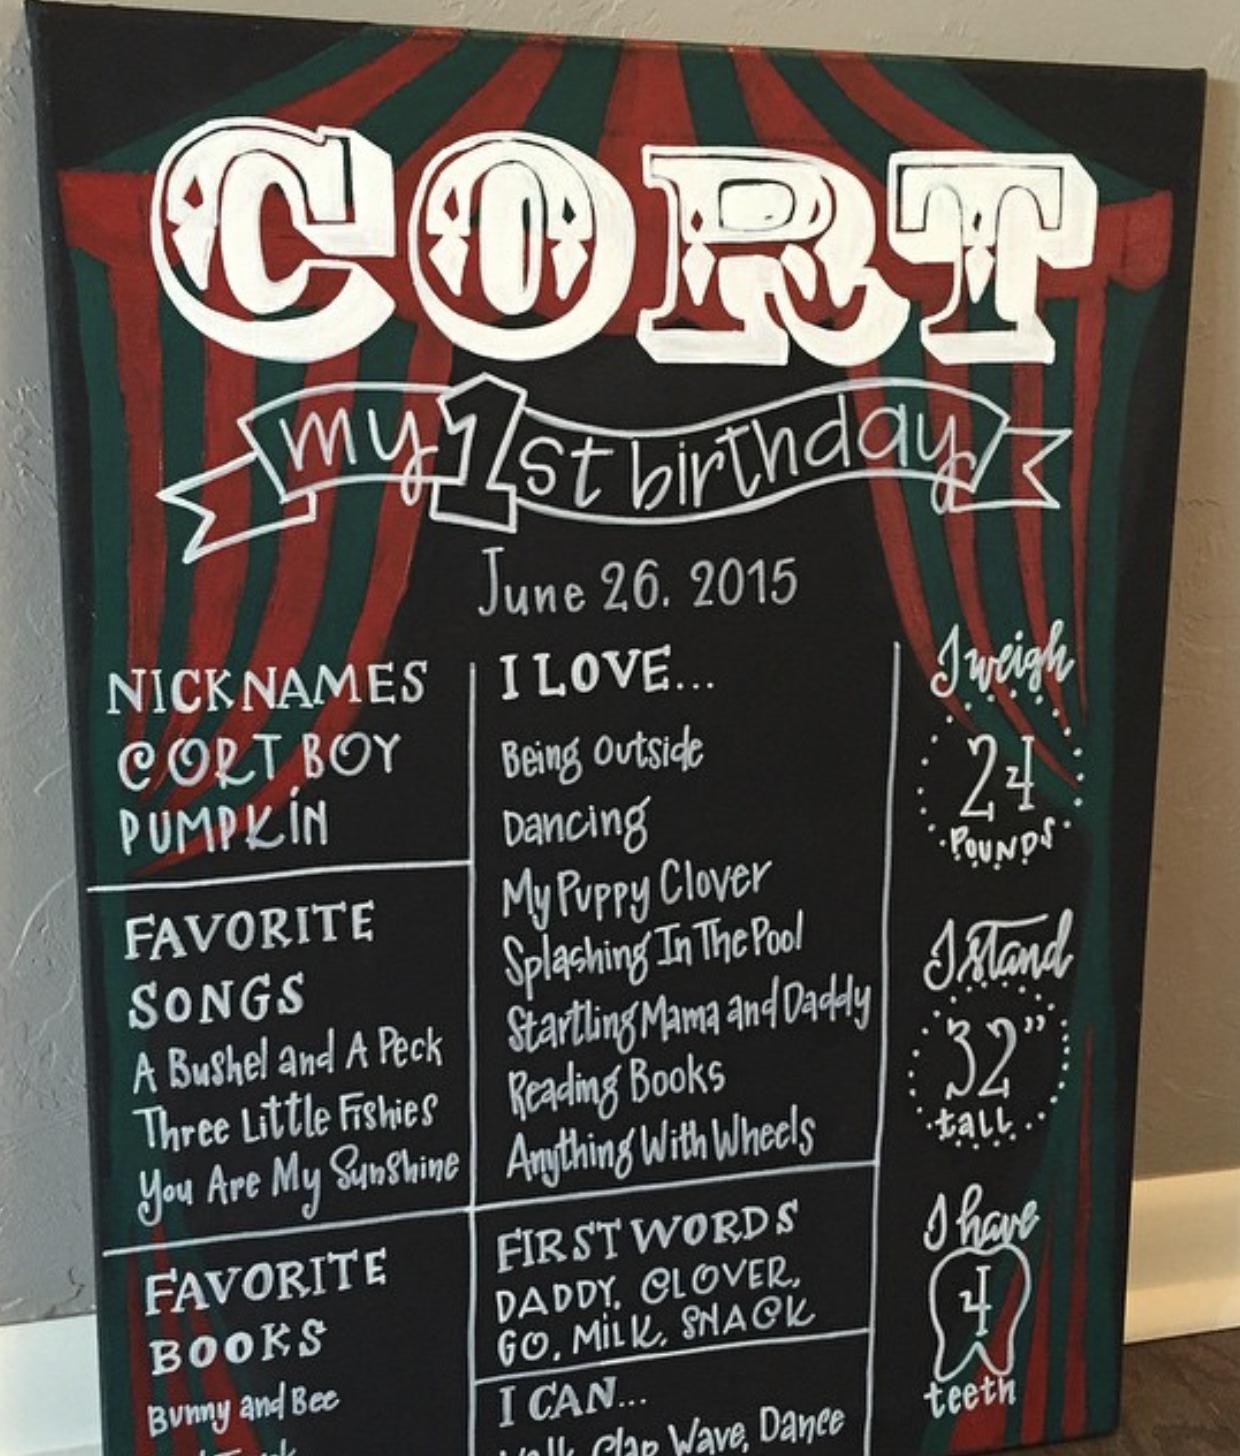 CORT
my 1st birthday
June 26. 2015
NICKNAMES
CORT BOY
PUMPKIN
FAVORITE
SONGS
A Bushel and A Peck
Three Little Fishies
You Are My Sunshine
FAVORITE
BOOKS
Bunny and Bee
I LOVE...
Being Outside
Dancing
My Puppy Clover
Splashing In The Pool
Startling Mama and Daddy
Reading Books
Anything With Wheels
FIRST WORDS
DADDY, CLOVER,
GO, MILK, SNACK
I CAN...
Walk, Clap, Wave, Dance
I weigh
24
POUNDS
I stand
32"
tall
I have
4
teeth